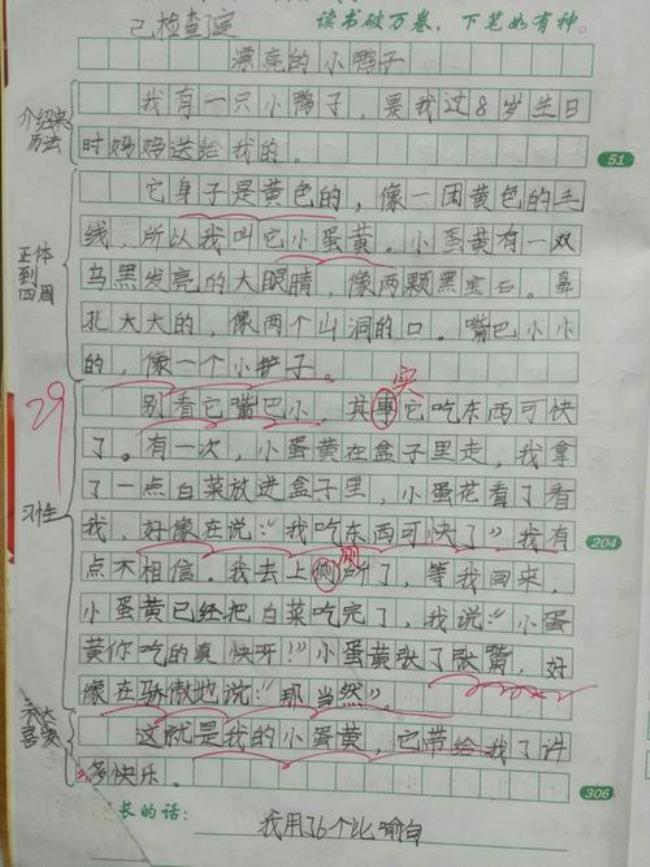 已检查了
读书破万卷，下笔如有神。
漂亮的小鸭子
介绍来历法
我有一只小鸭子，是我过8岁生日
时妈妈送给我的。
51
它身子是黄色的，像一团黄色的毛
线，所以我叫它小蛋黄。小蛋黄有一双
正体到四周
乌黑发亮的大眼睛，像两颗黑宝石。鼻
孔大大的，像两个山洞的口。嘴巴小小
的，像一个小铲子。
实
29
别看它嘴巴小，其事它吃东西可快
了。有一次，小蛋黄在盒子里走，我拿
了一点白菜放进盒子里，小蛋花看了看
习性
我，好像在说：“我吃东西可快了”我有
204
厕
点不相信。我去上侧所了，等我回来，
小蛋黄已经把白菜吃完了，我说：“小蛋
黄你吃的真快呀！”小蛋黄张了张嘴，好
像在骄傲地说：“那当然”。
喜爱
这就是我的小蛋黄，它带给我了许
多快乐。
306
长的话：
我用了6个比喻句